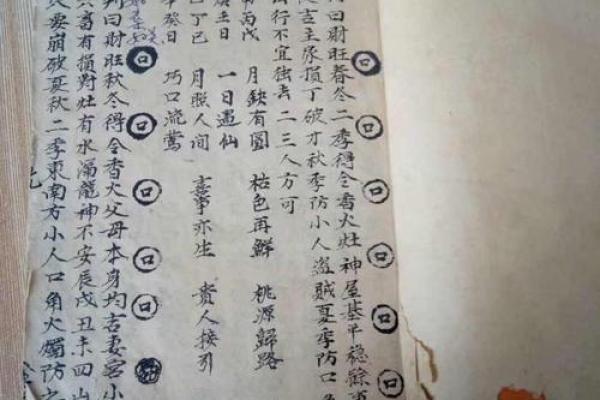 口口口口口口
曰財旺春冬二季得令香火灶神屋基平穩餘
吉主尿損丁破才秋季防小人盜賊夏季防口
行不宜独去二三人方可
丙戌 月缺有圓 枯色再鮮 桃源歸路
日 一日遇仙
丁巳 月照人间 喜事亦生 貴人接引
癸日 巧口流鶯
口口口口口
曰財旺秋冬得令香火父母本身均吉妻宮小
畜有損對灶有水漏龍神不安辰戌丑未四山
要崩破夏秋二季東南方小人口角火燭防之